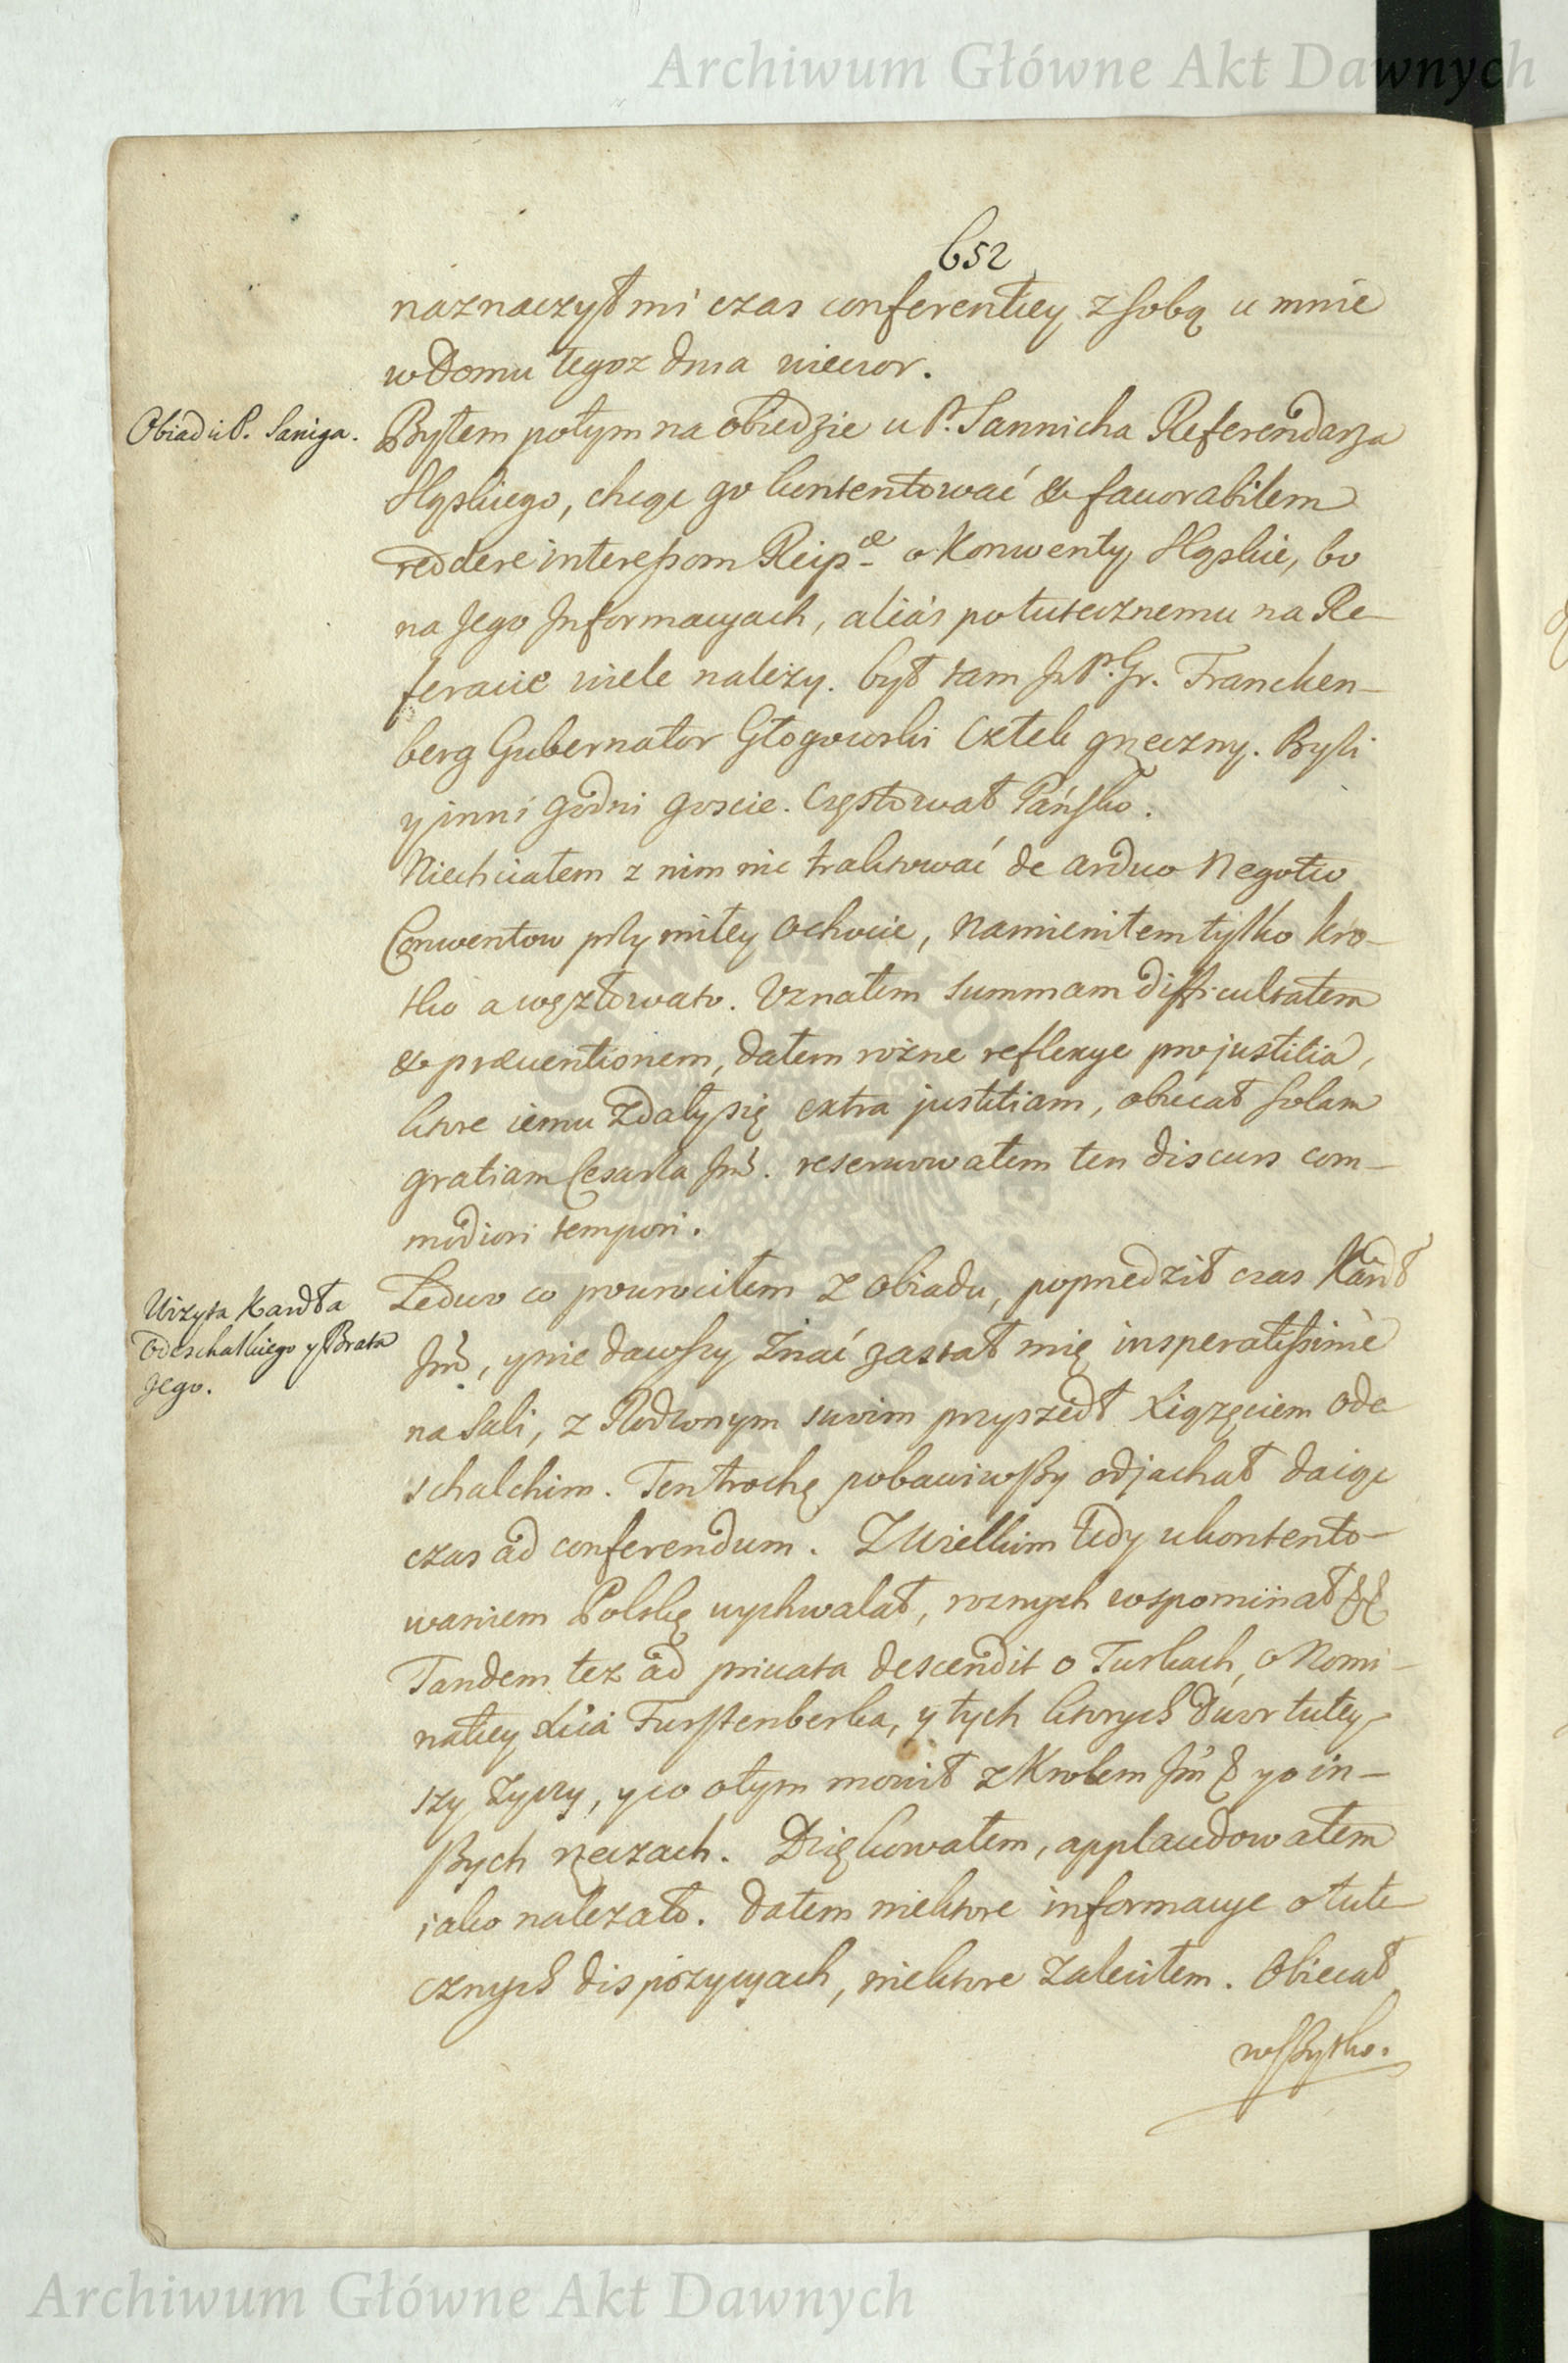 Archiwum Główne Akt Dawnych
652
naznaczył mi czas conferentiey z sobą u mnie
w Domu tegoz dnia wieczor.
Obiad u P. Saniga.
Byłem potym na obiedzie u P. Sannicha Referendarza
Sląskiego, chcąc go kontentować & favorabilem
reddere interessom Reip æ o Konwenty Sląskie, bo
na Jego Informacyach, alias po tutecznemu na Re-
feracie wiele należy. był tam JP. Gr. Francken-
berg Gubernator Głogowski Człek grzeczny. Byli
y inni godni goscie. Częstował Pańsko.
Niechciałem z nim nic traktować de arduo Negotio
Conwentow przy miłey ochocie, namieniłem tylko kro-
tko a węzłowato. Uznałem summam difficultatem
& præventionem, dałem rożne reflexye pro justitia,
ktore iemu zdały się extra justitiam, obiecał solam
gratiam Cesarza Jmć. reserwowałem ten discurs com-
modiori tempori.
Wizyta Kardła
Odeschalkiego y Brata
Jego.
Ledwo co powrociłem z obiadu, poprzedził czas Kardł
Jmć, y nie dawszy znać zastał mię insperatissimè
na Sali, z Rodzonym swoim przyszedł Xiązęciem Ode
schalchim. Ten trochę pobawiwszy odjachał daiąc
czas ad conferendum. Z Wielkim tedy ukontento-
waniem Polskę wychwalał, roznych wspominał
Tandem tez ad privata descendit o Turkach, o Nomi-
natiey Xcia Furstenberka, y tych ktorych dwor tutey-
szy życzy, y co o tym mowił z Krolem Jmć y o in-
szych rzeczach. Dziękowałem, applaudowałem
iako nalezało. Dałem niektore informacye o tute
cznych dispozycyach, niektore zaleciłem. Obiecał
wszytko.
Archiwum Główne Akt Dawnych